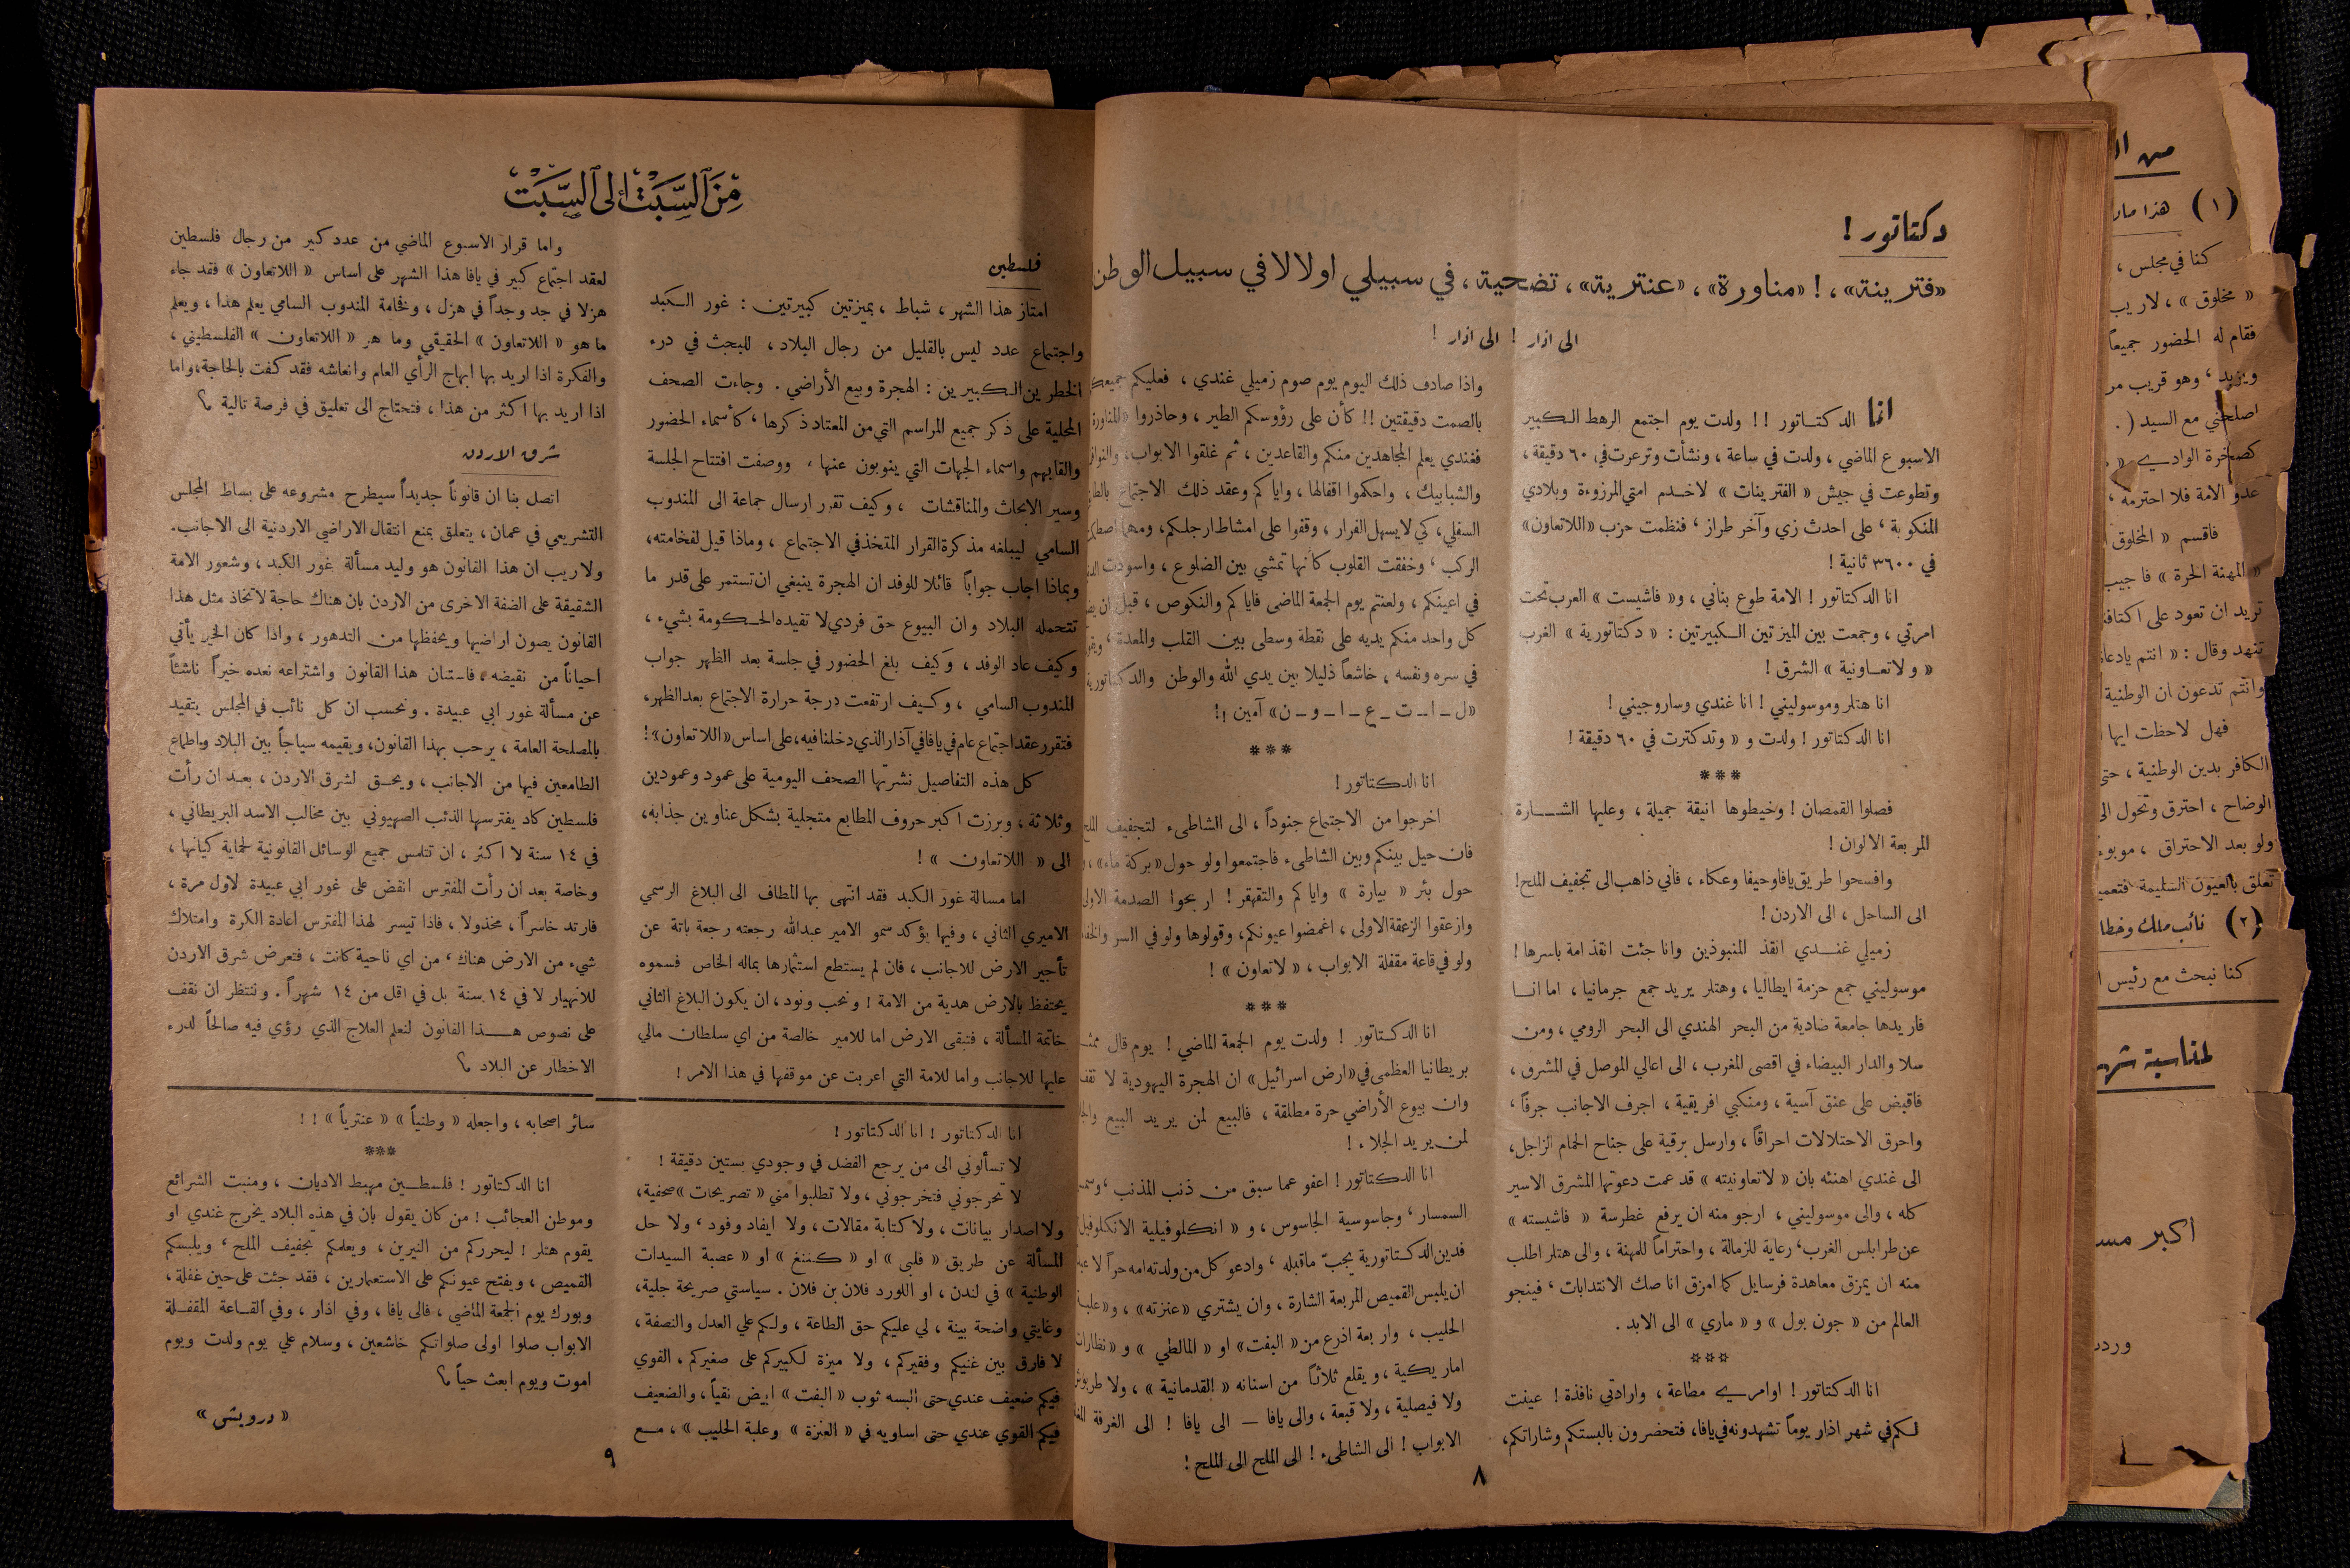 دكتاتور !
«فترينة»، ! «مناورة»، «عنترية»، تضحية، في سبيلي اولا لا في سبيل الوطن
الى اذار ! الى اذار !
انا الدكتاتور !! ولدت يوم اجتمع الرهط الكبير
الاسبوع الماضي ، ولدت في ساعة ، ونشأت وترعرعت في ٦٠ دقيقة ،
وتطوعت في جيش « الفترينات » لاخدم امتي المرزوءة وبلادي
المنكوبة ، على احدث زي وآخر طراز ، فنظمت حزب «اللاتعاون»
في ٣٦٠٠ ثانية !
انا الدكتاتور ! الامة طوع بناني ، و« فاشيست » العرب تحت
امرتي ، وجمعت بين الميزتين الكبيرتين : « دكتاتورية » الغرب
« ولاتعاونية » الشرق !
انا هتلر وموسوليني ! انا غندي وساروجيني !
انا الدكتاتور ! ولدت و « وتدكترت في ٦٠ دقيقة !
***
فصلوا القمصان ! وخيطوها انيقة جميلة ، وعليها الشارة
المربعة الالوان !
وافسحوا طريق يافا وحيفا وعكاء ، فاني ذاهب الى تجفيف الملح!
الى الساحل ، الى الاردن !
زميلي غندي انقذ المنبوذين وانا جئت انقذ امة باسرها !
موسوليني جمع حزمة ايطاليا ، وهتلر يريد جمع جرمانيا ، اما انا
فاريدها جامعة ضادية من البحر الهندي الى البحر الرومي ، ومن
سلا والدار البيضاء في اقصى المغرب ، الى اعالي الموصل في المشرق ،
فاقبض على عنق آسية ، ومنكبي افريقية ، اجرف الاجانب جرفاً ،
واحرق الاحتلالات احراقاً ، وارسل برقية على جناح الحمام الزاجل،
الى غندي اهنئه بان « لاتعاونيته » قد عمت دعوتها المشرق الاسير
كله ، والى موسوليني ، ارجو منه ان يرفع غطرسة « فاشيسته »
عن طرابلس الغرب، رعاية للزمالة ، واحتراماً للمهنة ، والى هتلر اطلب
منه ان يمزق معاهدة فرسايل كما امزق انا صك الانتدابات ، فينجو
العالم من « جون بول » و « ماري » الى الابد .
***
انا الدكتاتور ! اوامري مطاعة ، وارادتي نافذة ! عينت
لكم في شهر اذار يوماً تشهدونه في يافا، فتحضرون بالبستكم وشاراتكم،
واذا صادف ذلك اليوم يوم صوم زميلي غندي ، فعليكم
بالصمت دقيقتين !! كأن على رؤوسكم الطير ، وحاذروا «المناورة
فغندي يعلم المجاهدين منكم والقاعدين ، ثم غلقوا الابواب، والنوافذ
والشبابيك ، واحكموا اقفالها ، واياكم وعقد ذلك الاجتماع
السفلي، كي لا يسهل الفرار ، وقفوا على امشاط ارجلكم، ومهما
الركب ، وخفقت القلوب كأنها تمشي بين الضلوع ، واسودت
في اعينكم ، ولعنتم يوم الجمعة الماضي فاياكم والنكوص ، قبل ان
كل واحد منكم يديه على نقطة وسطى بين القلب والمعدة ،
في سره ونفسه ، خاشعاً ذليلا بين يدي الله والوطن والدكتاتورية
«ل ـ ا ـ ت ـ ع ـ ا ـ و ـ ن» آمين !!
***
انا الدكتاتور !
اخرجوا من الاجتماع جنوداً ، الى الشاطىء لتجفيف الملح
فان حيل بينكم وبين الشاطىء فاجتمعوا ولو حول «بركة ماء»،
حول بئر « بيارة » واياكم والتقهقر ! اربحوا الصدمة الاولى
وازعقوا الزعقة الاولى ، اغمضوا عيونكم، وقولوها ولو في السر
ولو في قاعة مقفلة الابواب ، « لاتعاون » !
***
انا الدكتاتور ! ولدت يوم الجمعة الماضي ! يوم قال
بريطانيا العظمى في «ارض اسرائيل» ان الهجرة اليهودية لا
وان بيوع الأراضي حرة مطلقة ، فالبيع لمن يريد البيع
لمن يريد الجلاء !
انا الدكتاتور ! اعفو عما سبق من ذنب المذنب ،
السمسار ، وجاسوسية الجاسوس ، و « انكلوفيلية الانكلوفيل
فدين الدكتاتورية يجبّ ماقبله ، وادعو كل من ولدته امه حراً
ان يلبس القميص المربعة الشارة ، وان يشتري «عنزته» ، و«علبة
الحليب ، واربعة اذرع من « البفت» او « المالطي » و «نظارات
اماريكية ، ويقلع ثلاثاً من اسنانه « القدمانية » ، ولا طربوش
ولا فيصلية ، ولا قبعة ، والى يافا — الى يافا ! الى الغرفة
الابواب ! الى الشاطىء ! الى الملح الى الملح !
٨
مِنَ السَّبْت إلى السَّبْت
فلسطين
امتاز هذا الشهر ، شباط ، بميزتين كبيرتين : غور الكبد
واجتماع عدد ليس بالقليل من رجال البلاد ، للبحث في درء
الخطرين الكبيرين : الهجرة وبيع الأراضي . وجاءت الصحف
المحلية على ذكر جميع المراسم التي من المعتاد ذكرها ، كأسماء الحضور
والقابهم واسماء الجهات التي ينوبون عنها ، ووصفت افتتاح الجلسة
وسير الابحاث والمناقشات ، وكيف تقرر ارسال جماعة الى المندوب
السامي ليبلغه مذكرة القرار المتخذ في الاجتماع ، وماذا قيل لفخامته،
وبماذا اجاب جواباً قائلا للوفد ان الهجرة ينبغي ان تستمر على قدر ما
تتحمله البلاد وان البيوع حق فردي لا تقيده الحكومة بشيء ،
وكيف عاد الوفد ، وكيف بلغ الحضور في جلسة بعد الظهر جواب
المندوب السامي ، وكيف ارتفعت درجة حرارة الاجتماع بعد الظهر،
فتقرر عقد اجتماع عام في يافا في آذار الذي دخلنا فيه، على اساس «اللاتعاون»!
كل هذه التفاصيل نشرتها الصحف اليومية على عمود وعمودين
وثلاثة ، وبرزت اكبر حروف المطابع متجلية بشكل عناوين جذابه،
الى « اللاتعاون » !
اما مسالة غور الكبد فقد انتهى بها المطاف الى البلاغ الرسمي
الاميري الثاني ، وفيها يؤكد سمو الامير عبدالله رجعته رجعة باتة عن
تأجير الارض للاجانب ، فان لم يستطع استثمارها بماله الخاص فسموه
يحتفظ بالارض هدية من الامة ! ونحب ونود ، ان يكون البلاغ الثاني
خاتمة المسألة ، فتبقى الارض اما للامير خالصة من اي سلطان مالي
عليها للاجانب واما للامة التي اعربت عن موقفها في هذا الامر !
واما قرار الاسبوع الماضي من عدد كبير من رجال فلسطين
لعقد اجتماع كبير في يافا هذا الشهر على اساس « اللاتعاون » فقد جاء
هزلا في جد وجداً في هزل ، وفخامة المندوب السامي يعلم هذا ، ويعلم
ما هو « اللاتعاون » الحقيقي وما هو « اللاتعاون » الفلسطيني ،
والفكرة اذا اريد بها ابهاج الرأي العام وانعاشه فقد كفت بالحاجة، واما
اذا اريد بها اكثر من هذا ، فتحتاج الى تعليق في فرصة تالية ؟
شرق الاردن
اتصل بنا ان قانوناً جديداً سيطرح مشروعه على بساط المجلس
التشريعي في عمان ، يتعلق بمنع انتقال الاراضي الاردنية الى الاجانب.
ولا ريب ان هذا القانون هو وليد مسألة غور الكبد ، وشعور الامة
الشقيقة على الضفة الاخرى من الاردن بان هناك حاجة لاتخاذ مثل هذا
القانون يصون اراضيها ويحفظها من التدهور ، واذا كان الخير يأتي
احياناً من نقيضه ، فاستنان هذا القانون واشتراعه نعده خيراً ناشئاً
عن مسألة غور ابي عبيدة . ونحسب ان كل نائب في المجلس يتقيد
بالمصلحة العامة ، يرحب بهذا القانون، ويقيمه سياجاً بين البلاد واطماع
الطامعين فيها من الاجانب ، ويحق لشرق الاردن ، بعد ان رأت
فلسطين كاد يفترسها الذئب الصهيوني بين مخالب الاسد البريطاني ،
في ١٤ سنة لا اكثر ، ان تتلمس جميع الوسائل القانونية لحماية كيانها ،
وخاصة بعد ان رأت المفترس انقض على غور ابي عبيدة لاول مرة ،
فارتد خاسراً ، مخذولا ، فاذا تيسر لهذا المفترس اعادة الكرة وامتلاك
شيء من الارض هناك ، من اي ناحية كانت ، فتعرض شرق الاردن
للانهيار لا في ١٤ سنة بل في اقل من ١٤ شهراً . وننتظر ان نقف
على نصوص هذا القانون لنعلم العلاج الذي رؤي فيه صالحاً لدرء
الاخطار عن البلاد ؟
انا الدكتاتور ! انا الدكتاتور !
لا تسألوني الى من يرجع الفضل في وجودي بستين دقيقة !
لا تحرجوني فتخرجوني ، ولا تطلبوا مني « تصريحات » صحفية،
ولا اصدار بيانات ، ولا كتابة مقالات ، ولا ايفاد وفود ، ولا حل
المسألة عن طريق « فلبي » او « كننغ » او « عصبة السيدات
الوطنية » في لندن ، او اللورد فلان بن فلان . سياستي صريحة جلية،
وغايتي واضحة بينة ، لي عليكم حق الطاعة ، ولكم علي العدل والنصفة ،
لا فارق بين غنيكم وفقيركم ، ولا ميزة لكبيركم على صغيركم ، القوي
فيكم ضعيف عندي حتى البسه ثوب « البفت » ابيض نقياً ، والضعيف
فيكم القوي عندي حتى اساويه في « العنزة » وعلبة الحليب » ، مع
سائر اصحابه ، واجعله « وطنياً » « عنترياً » !!
***
انا الدكتاتور ! فلسطين مهبط الاديان ، ومنبت الشرائع
وموطن العجائب ! من كان يقول بان في هذه البلاد يخرج غندي او
يقوم هتلر ! ليحرركم من النيرين ، ويعلمكم تجفيف الملح ، ويلبسكم
القميص ، ويفتح عيونكم على الاستعمارين ، فقد جئت على حين غفلة ،
وبورك يوم الجمعة الماضي ، فالى يافا ، وفي اذار ، وفي القاعة المقفلة
الابواب صلوا اولى صلواتكم خاشعين ، وسلام علي يوم ولدت ويوم
اموت ويوم ابعث حياً ؟
« درويش »
٩
(١) هذا
كنا في مجلس ،
« مخلوق » ، لاريب
فقام له الحضور جميعاً
ويزيد ، وهو قريب
اصلحني مع السيد ( .
كصخرة الوادي «
عدو الامة فلا احترمه ،
فاقسم « المخلوق
« المهنة الحرة »
تريد ان تعود على
تنهد وقال : « انتم
وانتم تدعون ان الوطنية
فهل لاحظت ايها
الكافر بدين الوطنية ، حتى
الوضاح ، احترق وتحول الى
ولو بعد الاحتراق ،
تعلق بالعيون السليمة
(٢) نائب ملك
كنا نبحث مع رئيس
لمناسبة
اكبر